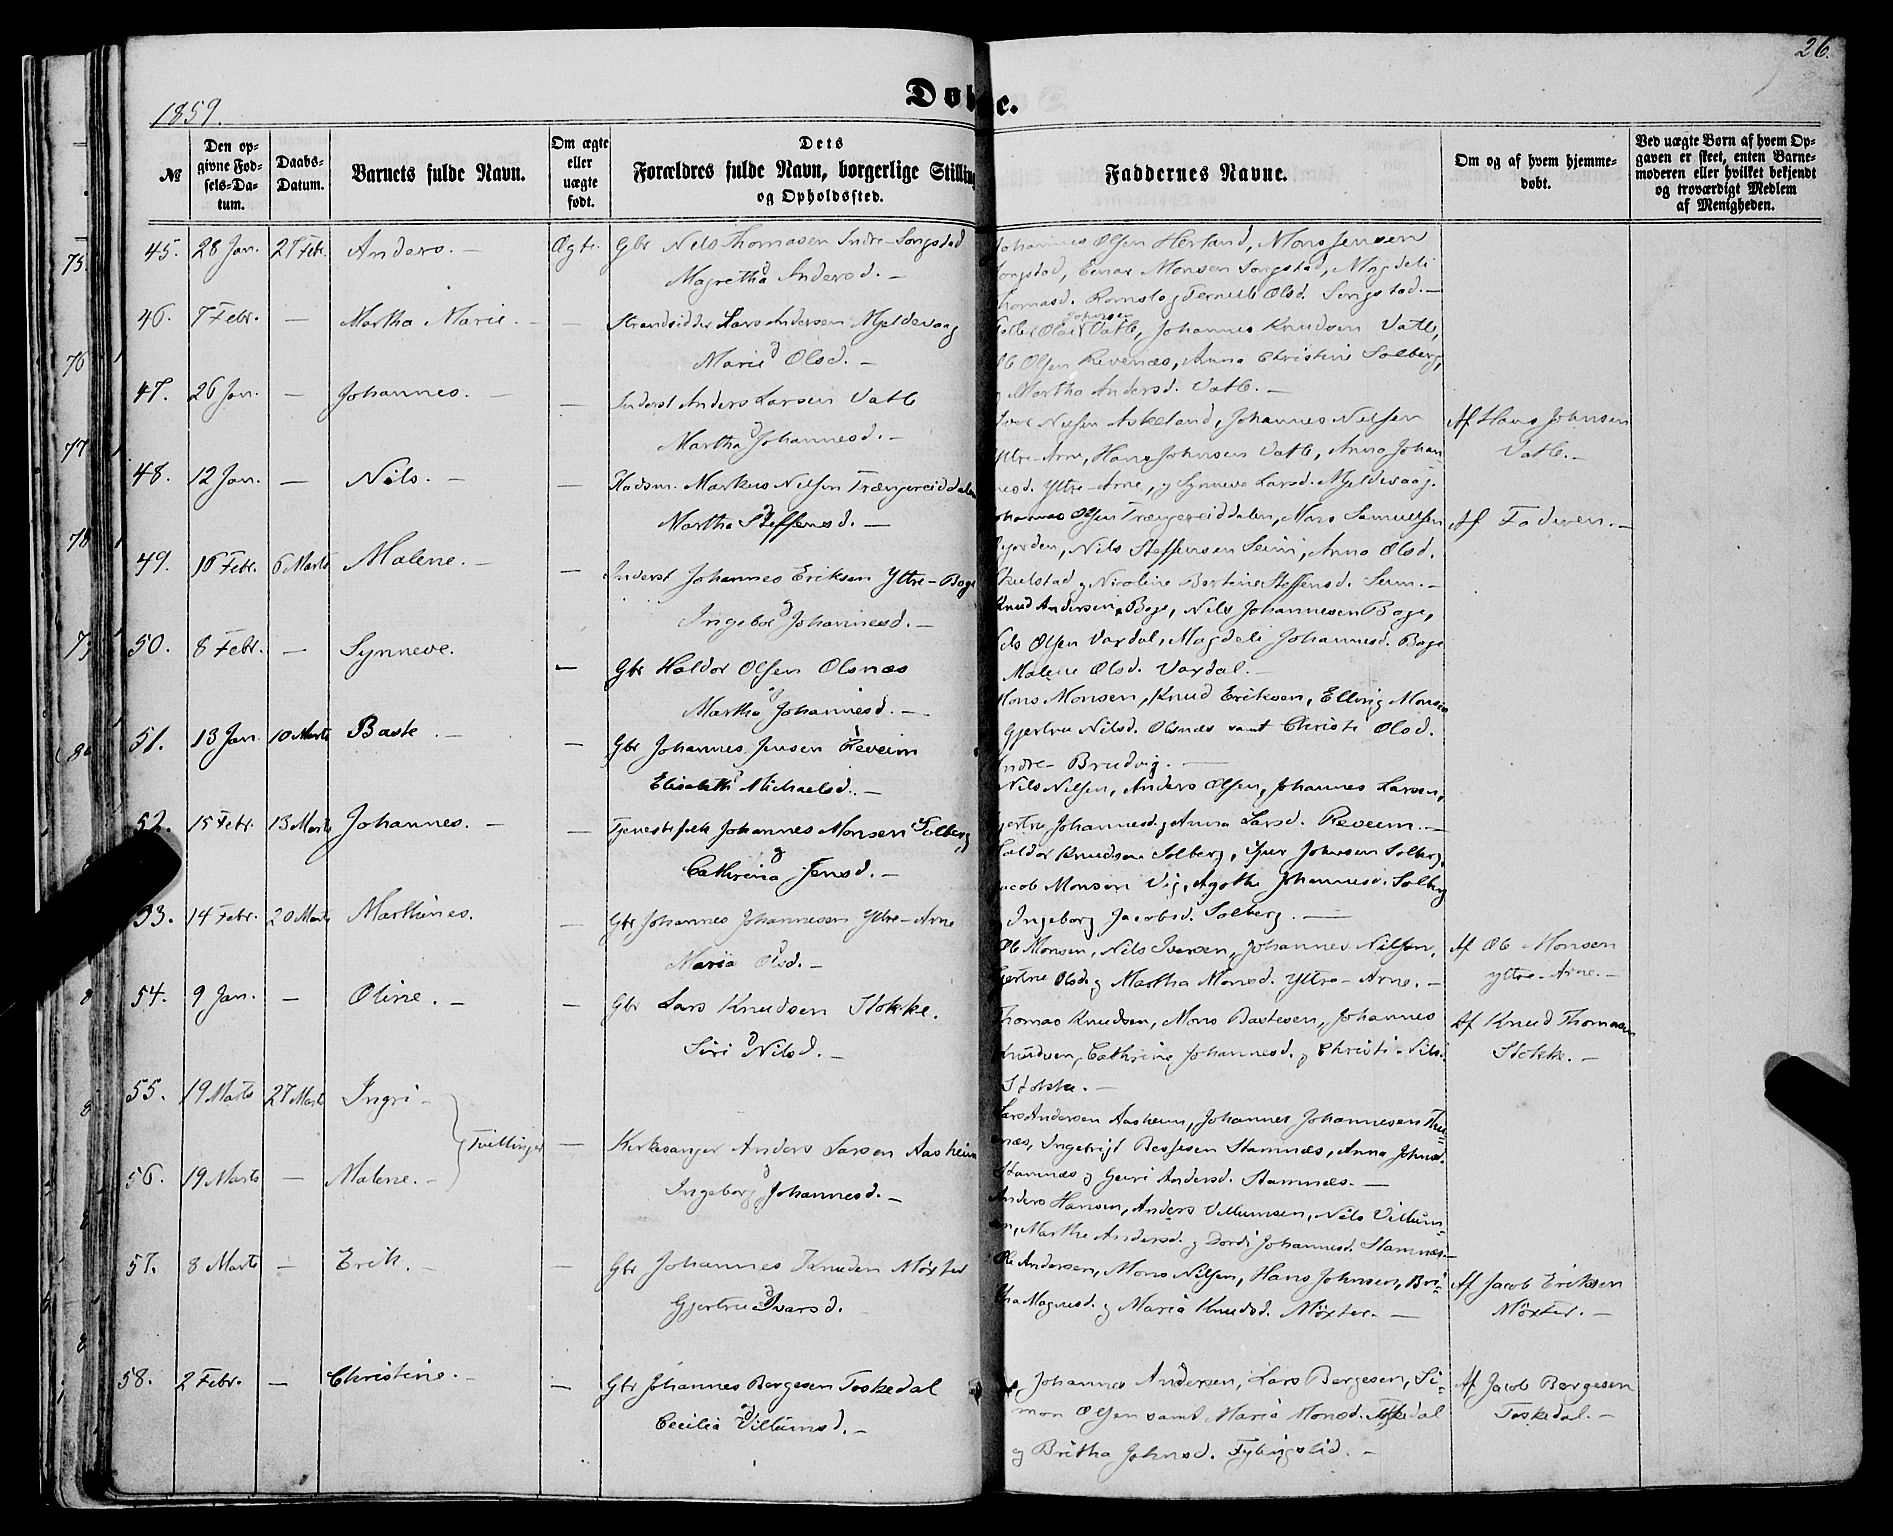 26.
Døb e.
1859.
№
Den op-
givne Fød-
sels-Da-
tum.
Daabs-
Datum.
Barnets fulde Navn.
Om ægte
eller
uægte
født.
Dets
Forældres fulde Navn, borgerlige Stillin
og Opholdssted.
Faddernes Navne.
Om og af hvem hjemme-
døbt.
Ved uægte Børn af hvem Op-
gaven er skeet, enten Barne-
moderen eller hvilket bekjendt
og troværdigt Medlem
af Menigheden.
45. 28 Jan. 27 Febr. Anders. — Ægte. Gbr Nels Thomasen Indre-Songstad
Magretha Andersd. —
Johannes Olsen Herland, Mons Jensen
Songstad, Einar Monsen Songstad, Magdeli
Thomasd. Romslo og Pernille Olsd. Songstad. —
46. 7 Febr. — Martha Marie. — — Strandsidder Lars Andersen Mjeldevaag
Marie Olsd. —
Johnsen
Vatle, Johannes Knudsen Vatle,
Ole Olsen Revenæs, Anna Christine Solberg,
Martha Andersd. Vatle. —
47. 26 Jan. — Johannes. — — Inderst Anders Larsen Vatle
Martha Johannesd. —
Iver Nelsen Askeland, Johannes Nelsen
Yttre-Arne, Hans Johnsen Vatle, Anna Johan
nesd. Yttre-Arne, og Synneve Larsd. Mjeldevaag.
Af Hans Johnsen
Vatle. —
48. 12 Jan. — Nils. — — Huusm. Markus Nelsen Trængereiddalen
Martha Steffensd. —
Johannes Olsen Trængereiddalen, Mons Samuelsen
Nils Steffensen Seim, Anna Olsd.
Skulstad og Nicoline Bertine Steffensd. Seim. —
Af Faderen. —
49. 16 Febr. 6 Marts Malene. — — Inderst Johannes Eriksen Yttre-Boge
Ingebor Johannesd. —
Knud Andersen Boge, Nels Johannesen Boge,
Nels Olsen Vaxdal, Magdeli Johannesd. Boge
Malene Olsd. Vaxdal. —
50. 8 Febr. — Synneve. — Gbr Haldor Olsen Olsnæs
Martha Johannesd. —
Mons Monsen, Knud Eriksen, Elling Monsen
Gjertru Nilsd. Olsnæs samt Christi Olsd.
Indre-Brudvig. —
51. 13 Jan. 10 Marts Baste. — — Gbr Johannes Jensen Reveim
Elisabeth Michaelsd. —
Nils Nelsen, Anders Olsen, Johannes Larsen,
Gjertru Johannesd. og Anna Larsd. Reveim. —
52. 15 Febr. 13 Marts Johannes. — — Tjenestefolk Johannes Monsen Solberg
og
Cathrina Jensd. —
Haldor Knudsen Solberg, Iver Johnsen Solberg,
Jacob Monsen Vig, Agathe Johannesd. Solberg
Ingeborg Jacobsd. Solberg. —
53. 14 Febr. 20 Marts Marthines. — Gbr Johannes Johannesen Yttre-Arne
Maria Olsd. —
Ole Monsen, Nils Iversen, Johannes Nilsen,
Gjertru Olsd. og Martha Monsd. Yttre-Arne. —
Af Ole Monsen
Yttre-Arne. —
54. 9 Jan. — Oline. — — Gbr Lars Knudsen Stokke.
Siri Nilsd. —
Thomas Knudsen, Mons Bastesen, Johannes
Knudsen, Cathrine Johannesd. og Christi Nils
Stokke. —
Af Knud Thomasen
Stokke. —
55. 19 Marts 27 Marts Ingri —
Tvillinger — Kirkesanger Anders Larsen Aasheim
Ingeborg Johannesd. —
Lars Andersen Aasheim, Johannes Johannesen
Ingebrigt Bessesen Stamnæs, Anna Johnsd.
Stamnæs og Guri Andersd. Stamnæs. —
56. 19 Marts — Malene. —
Anders Hansen, Anders Villumsen, Nils Villum=
Marthe Andersd. og Dordi Johannesd. Stamnæs. —
57. 8 Marts — Erik. — — Gbr Johannes Knudsen Møxter
Gjertru Ivarsd.
Ole Andersen, Mons Nilsen, Hans Johnsen, Bri=
tha Magnesd. og Maria Knudsd. Møxter. —
Af Jacob Eriksen
Møxter. —
58. 2 Febr. — Christine. — — Gbr Johannes Børgesen Toskedal
Cecilia Villumsd. —
Johannes Andersen, Lars Børgesen, Si=
mon Olsen samt Maria Monsd. Toskedal
og Britha Johnsd. Fyllingslid. —
Af Jacob Børgesen
Toskedal. —
75.
76
77
78
79
80